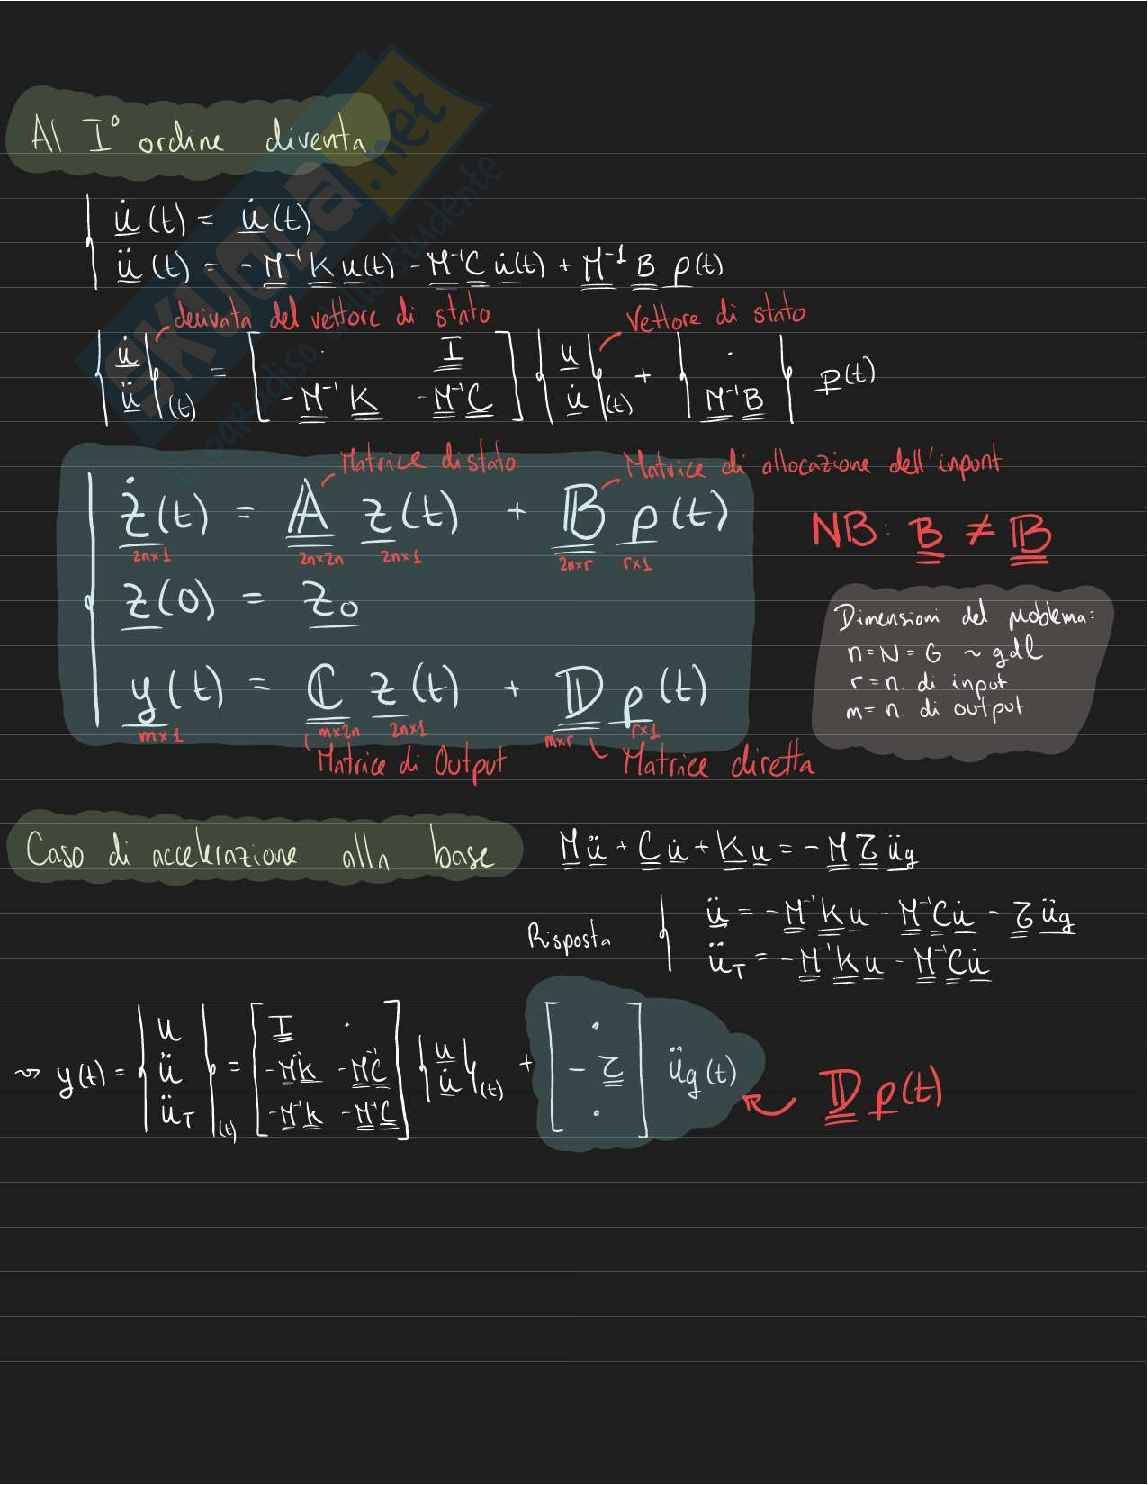 Al I° ordine diventa
u̇(t) = u̇(t)
ü(t) = -M⁻¹K u(t) - M⁻¹C u̇(t) + M⁻¹ B p(t)
derivata del vettore di stato Vettore di stato
{u̇ ü}(t) = [· I ; -M⁻¹K -M⁻¹C] {u u̇}(t) + {· M⁻¹B} p(t)
Matrice di stato Matrice di allocazione dell'inpunt
ż(t) = 𝔸 z(t) + 𝔹 p(t)
2n×1 2n×2n 2n×1 2n×r r×1
NB: B ≠ 𝔹
z(0) = z₀
y(t) = ℂ z(t) + 𝔻 p(t)
m×1 m×2n 2n×1 m×r r×1
Matrice di Output Matrice diretta
Dimensioni del problema:
n=N=G ~ gdl
r=n. di input
m=n. di output
Caso di accelerazione alla base Mü + Cu̇ + Ku = -M τ üg
Risposta
ü = -M⁻¹Ku - M⁻¹Cu̇ - τ üg
üT = -M⁻¹Ku - M⁻¹Cu̇
⇝ y(t) = {u ü üT}(t) = [I · ; -M⁻¹K -M⁻¹C ; -M⁻¹K -M⁻¹C] {u u̇}(t) + [· ; -τ ; ·] üg(t)
𝔻 p(t)
SKUOLA.net